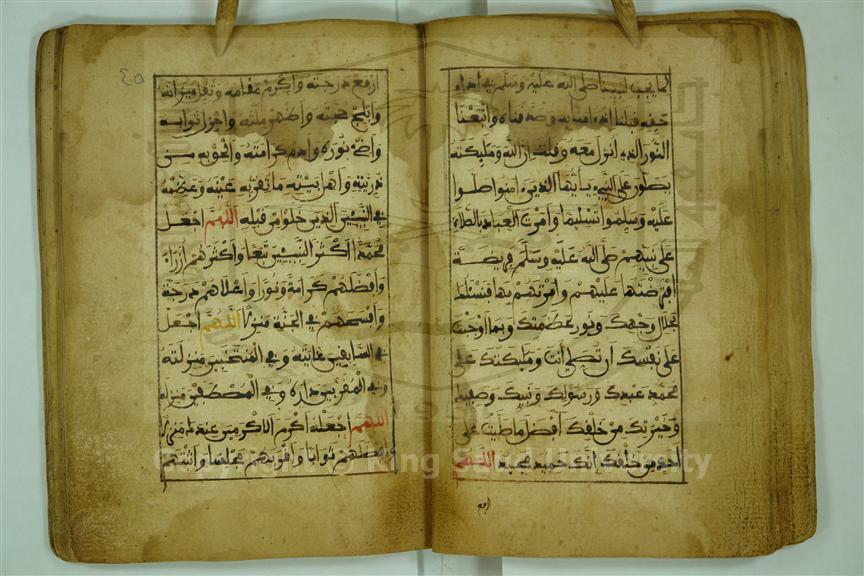 كما يجب لنبينا صلى الله عليه وسلم في اداء
حقه قبلنا اذ امنا به وصدقناه واتبعنا
النور الذي انزل معه وقلت ان الله وملئكته
يصلون على النبيء يايها الذين ءامنوا صلوا
عليه وسلموا تسليما وامرت العباد بالصلاة
على نبيهم صلى الله عليه وسلم فريضة
افترضتها عليهم وامرتهم بها فنسئلك
بجلال وجهك ونور عظمتك وبما اوجبت
على نفسك ان تصلي أنت وملئكتك على
محمد عبدك ورسولك ونبيك وصفيك
وخيرتك من خلقك افضل ما صليت على
احد من خلقك انك حميد مجيد اللهم
ارفع
٤٥
ارفع درجته واكرم مقامه وثقل ميزانه
وابلج حجته واظهر ملته واجزل ثوابه
واضئ نوره وادم كرامته والحق به من
ذريته واهل بيته ما تقر به عينه وعظمه
في النبيئين الذين خلوا من قبله اللهم اجعل
محمدا اكثر النبيئين تبعا واكثرهم ازراء
وافضلهم كرامة ونورا واعلاهم درجة
وافسحهم في الجنة منزلا اللهم اجعل
في السابقين غايته وفي المنتخبين منزلته
وفي المقربين داره وفي المصطفين منزله
اللهم اجعله اكرم الاكرمين عندك منزلا
وافضلهم ثوابا واقربهم مجلسا واثبتهم
Copyright © King Saud University